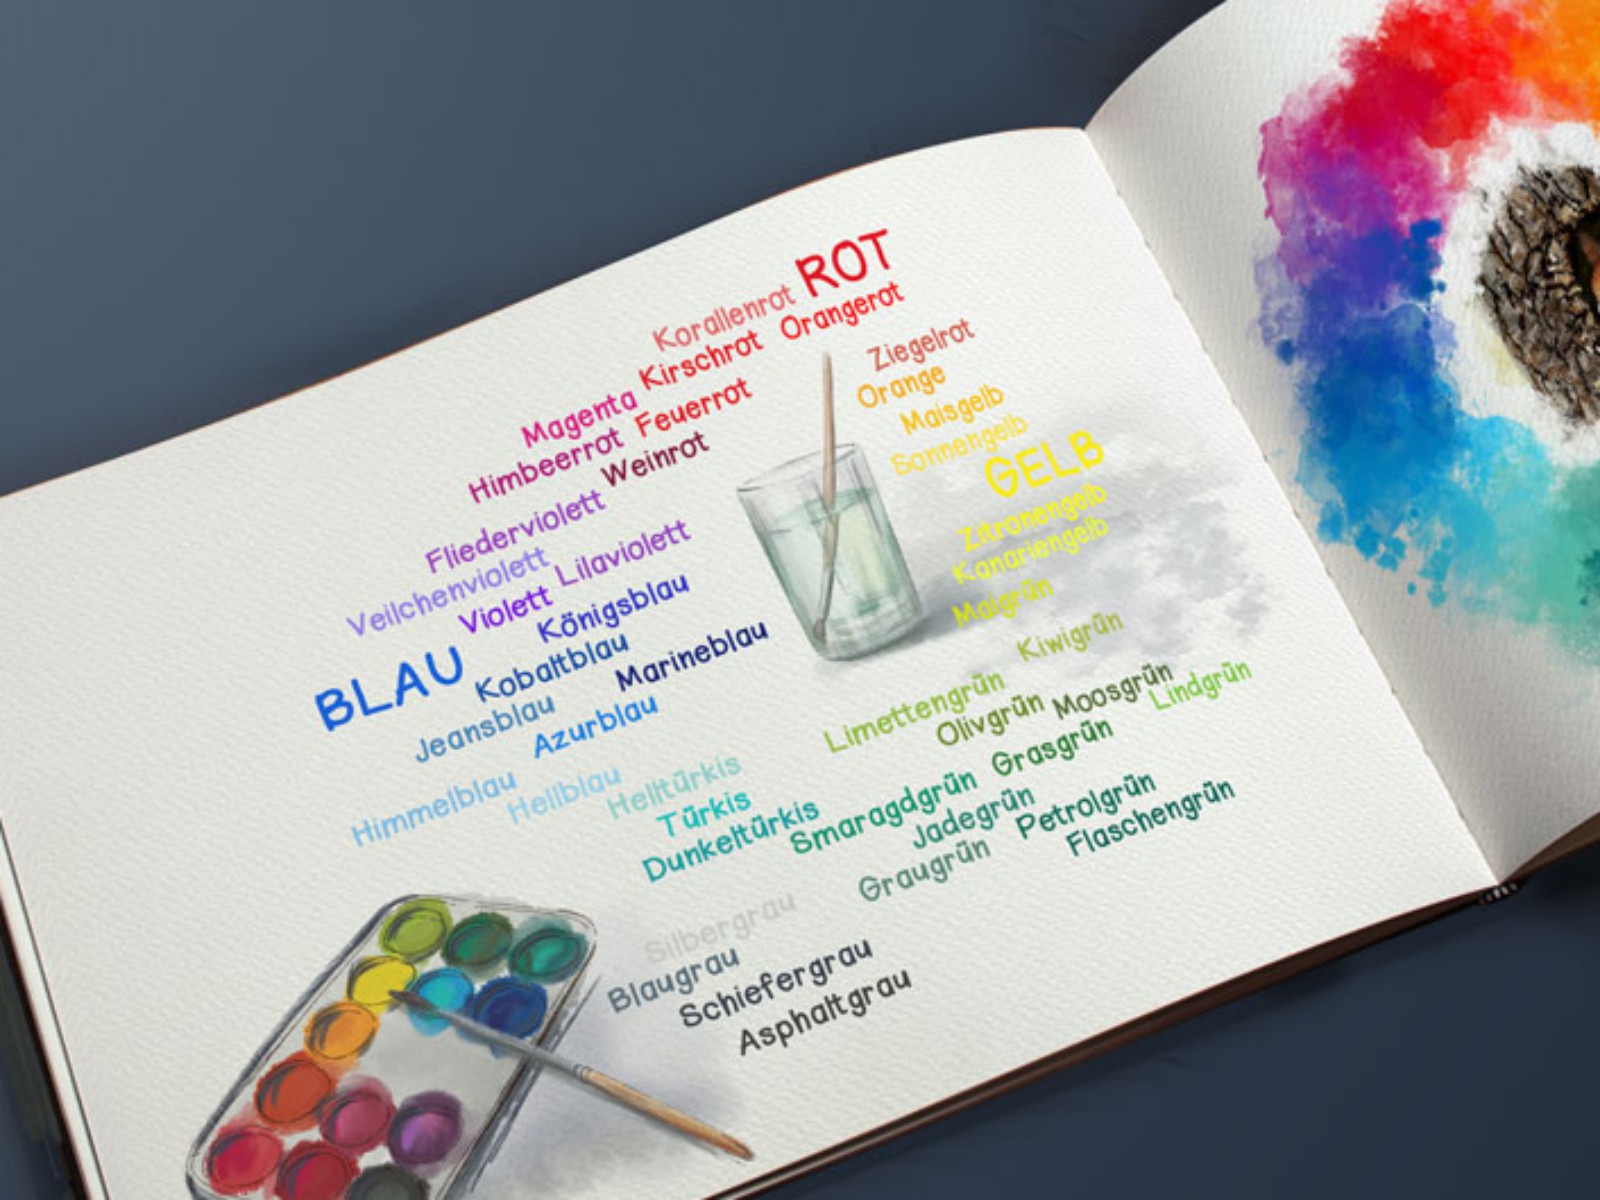 ROT
Korallenrot
Orangerot
Kirschrot
Ziegelrot
Magenta
Feuerrot
Orange
Himbeerrot
Weinrot
Maisgelb
Sonnengelb
GELB
Fliederviolett
Zitronengelb
Veilchenviolett
Lilaviolett
Kanariengelb
Violett
Königsblau
Maigrün
BLAU
Kobaltblau
Marineblau
Kiwigrün
Jeansblau
Azurblau
Limettengrün
Olivgrün
Moosgrün
Lindgrün
Himmelblau
Hellblau
Helltürkis
Grasgrün
Türkis
Dunkeltürkis
Smaragdgrün
Jadegrün
Petrolgrün
Flaschengrün
Graugrün
Silbergrau
Blaugrau
Schiefergrau
Asphaltgrau